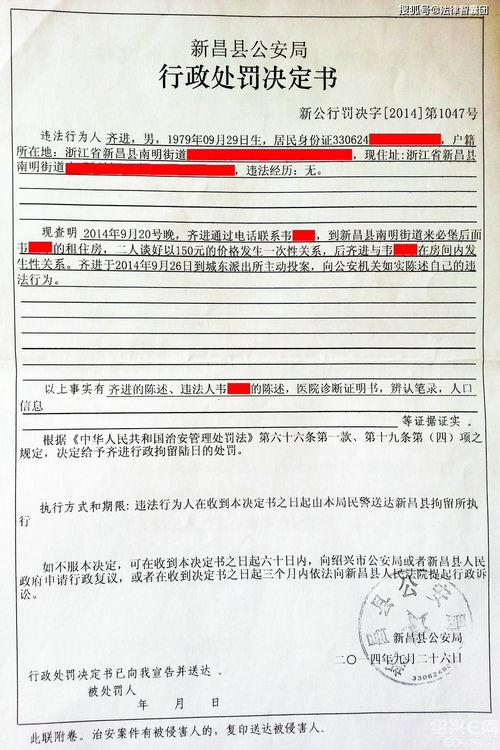 搜狐号@法律智囊团
新昌县公安局
行政处罚决定书
新公行罚决字[2014]第1047号
违法行为人 齐进，男，1979年09月29日生，居民身份证330624，户籍
所在地：浙江省新昌县南明街道，现住址：浙江省新昌县
南明街道，违法经历：无。
现查明 2014年9月20号晚，齐进通过电话联系韦，到新昌县南明街道来必堡后面
韦的租住房，二人谈好以150元的价格发生一次性关系，后齐进与韦在房间内发
生性关系。齐进于2014年9月26日到城东派出所主动投案，向公安机关如实陈述自己的违
法行为。
以上事实有 齐进的陈述、违法人韦的陈述，医院诊断证明书，辨认笔录，人口
信息
等证据证实 。
根据《中华人民共和国治安管理处罚法》第六十六条第一款、第十九条第（四）项之
规定，决定给予齐进行政拘留陆日的处罚。
执行方式和期限：违法行为人在收到本决定书之日起由本局民警送达新昌县拘留所执
行
如不服本决定，可在收到本决定书之日起六十日内，向绍兴市公安局或者新昌县人民
政府申请行政复议，或者在收到决定书之日起三个月内依法向新昌县人民法院提起行政诉
讼。
新昌县公安局
二〇一四年九月二十六日
行政处罚决定书已向我宣告并送达 。
被处罚人
年 月 日
此联附卷。治安案件有被侵害人的，复印送达被侵害人。
绍兴E网